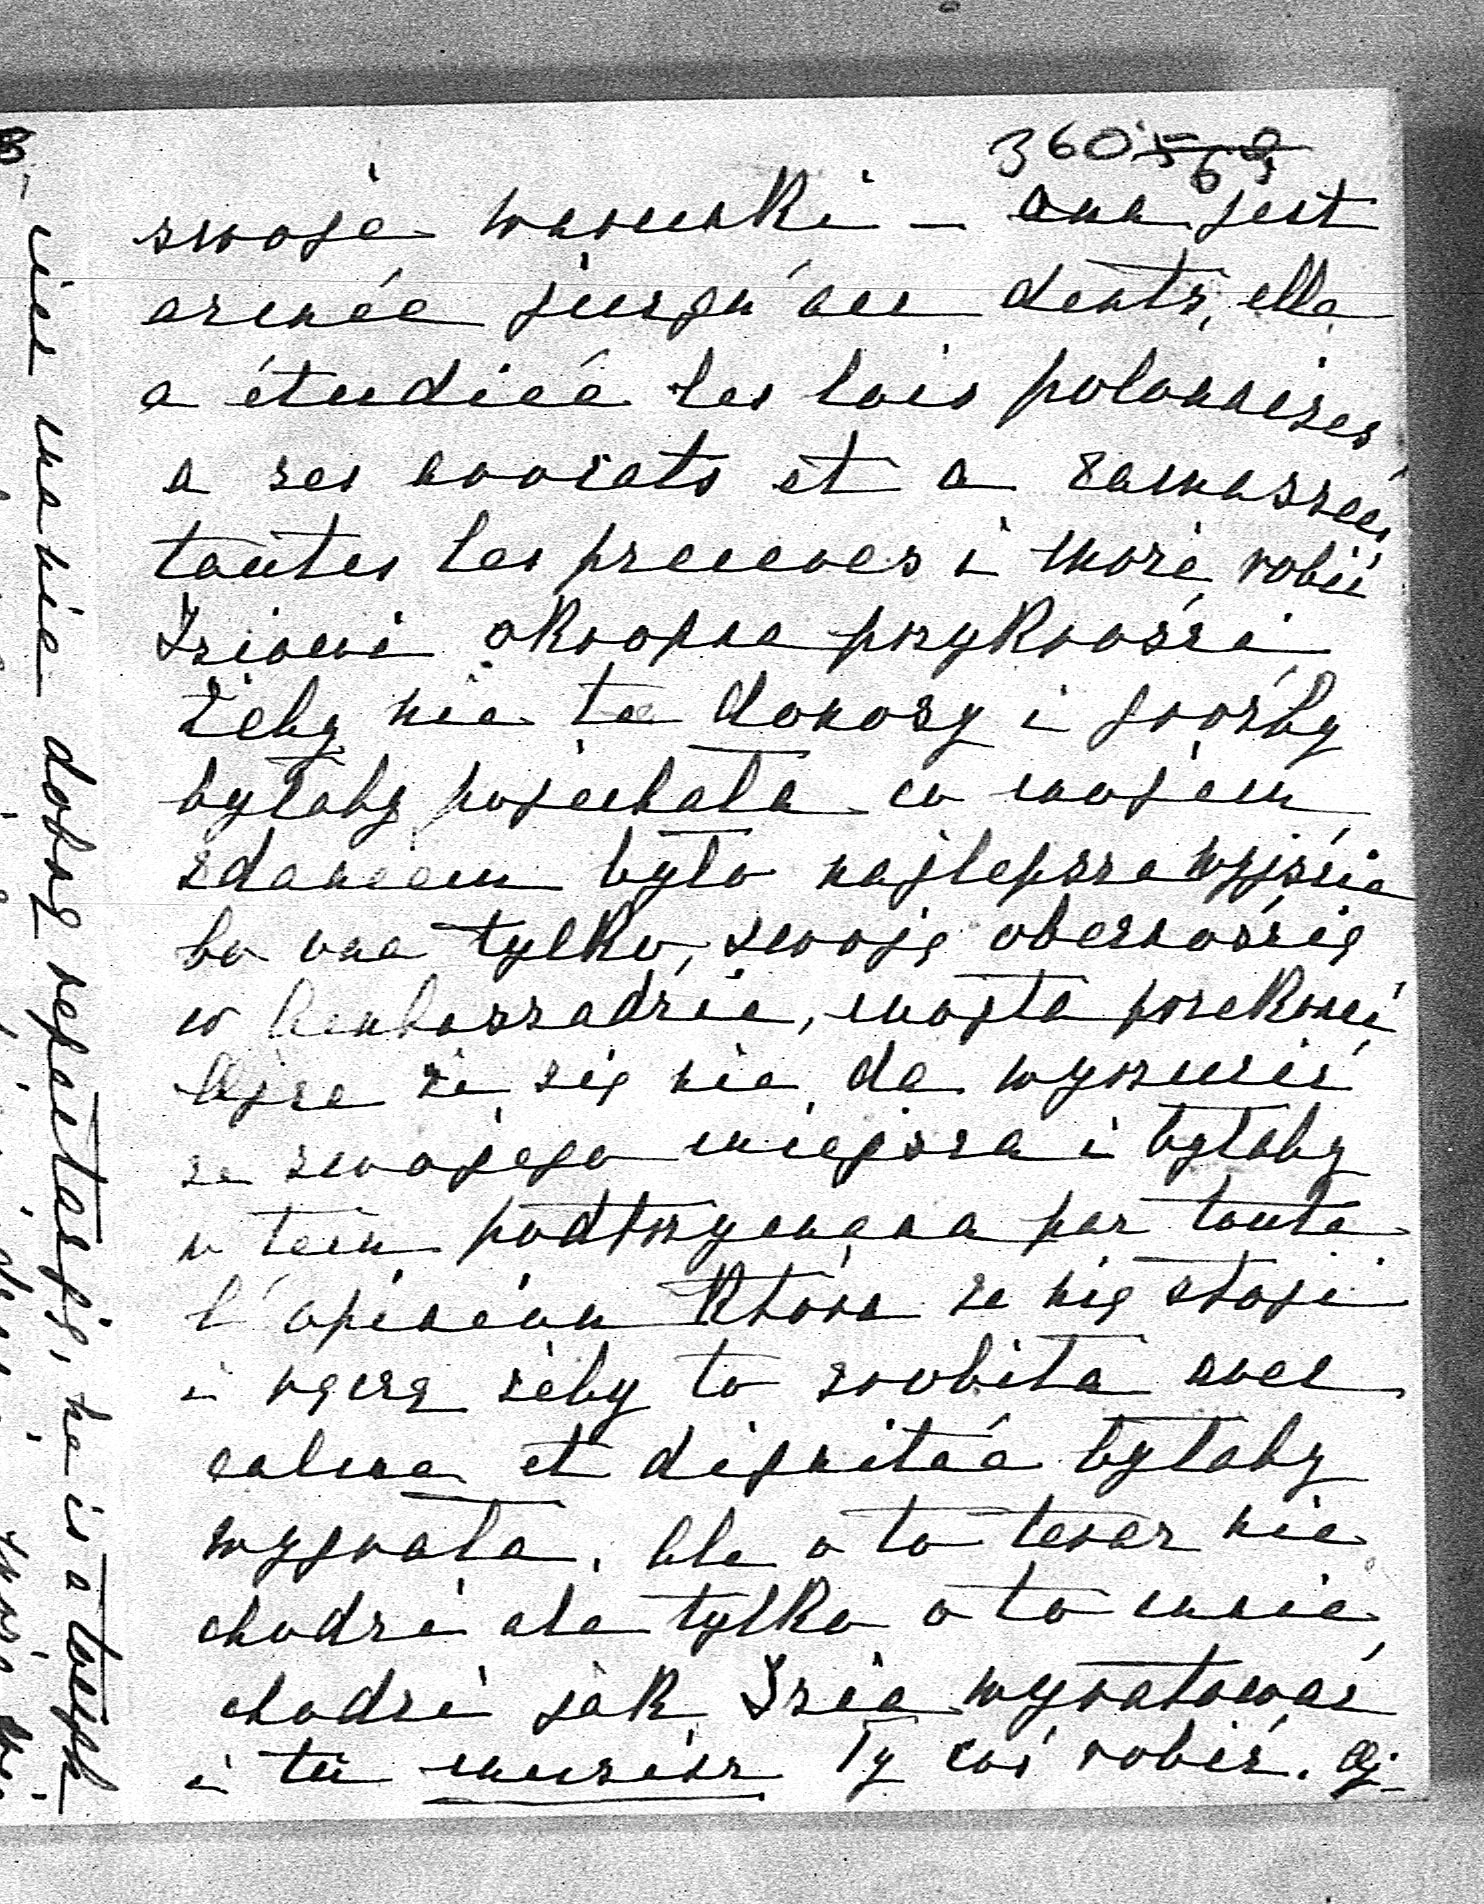 360 569
swoje warunki – ona jest
armée jusqu'au dents, elle
a étudiée les lois polonaises,
a ses avocats et a ramassées
toutes les preuves i może robić
Iziowi okropne przykrości
Żeby nie te donosy i groźby
byłaby pojechała co mojem
zdaniem było najlepsze wyjście
bo ona tylko, swoją obecnością
w Ambassadzie, mogła przekonać
Ojca że się nie da wyrzucić
ze swojego miejsca i byłaby
w tem podtrzymana par toute
l'opinion która za nią stoji
i żeby to zrobiła avec
calme et dignitée byłaby
wygrała. Ale o to teraz nie
chodzi ale tylko o to mnie
chodzi jak Izia wyratować
i tu musisz Ty coś robić. Oj-
nie dobrą reputasję, he is a tough